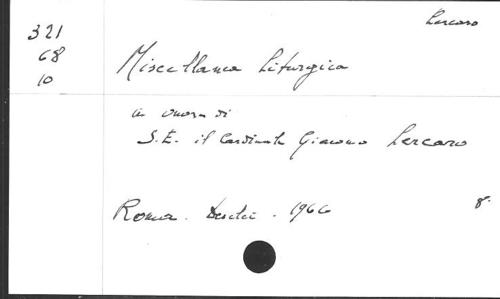 Lercaro
321
68
10
Miscellanea Liturgica
in onore di
S.E. il Cardinale Giacomo Lercaro
Roma. Desclée. 1966
8°